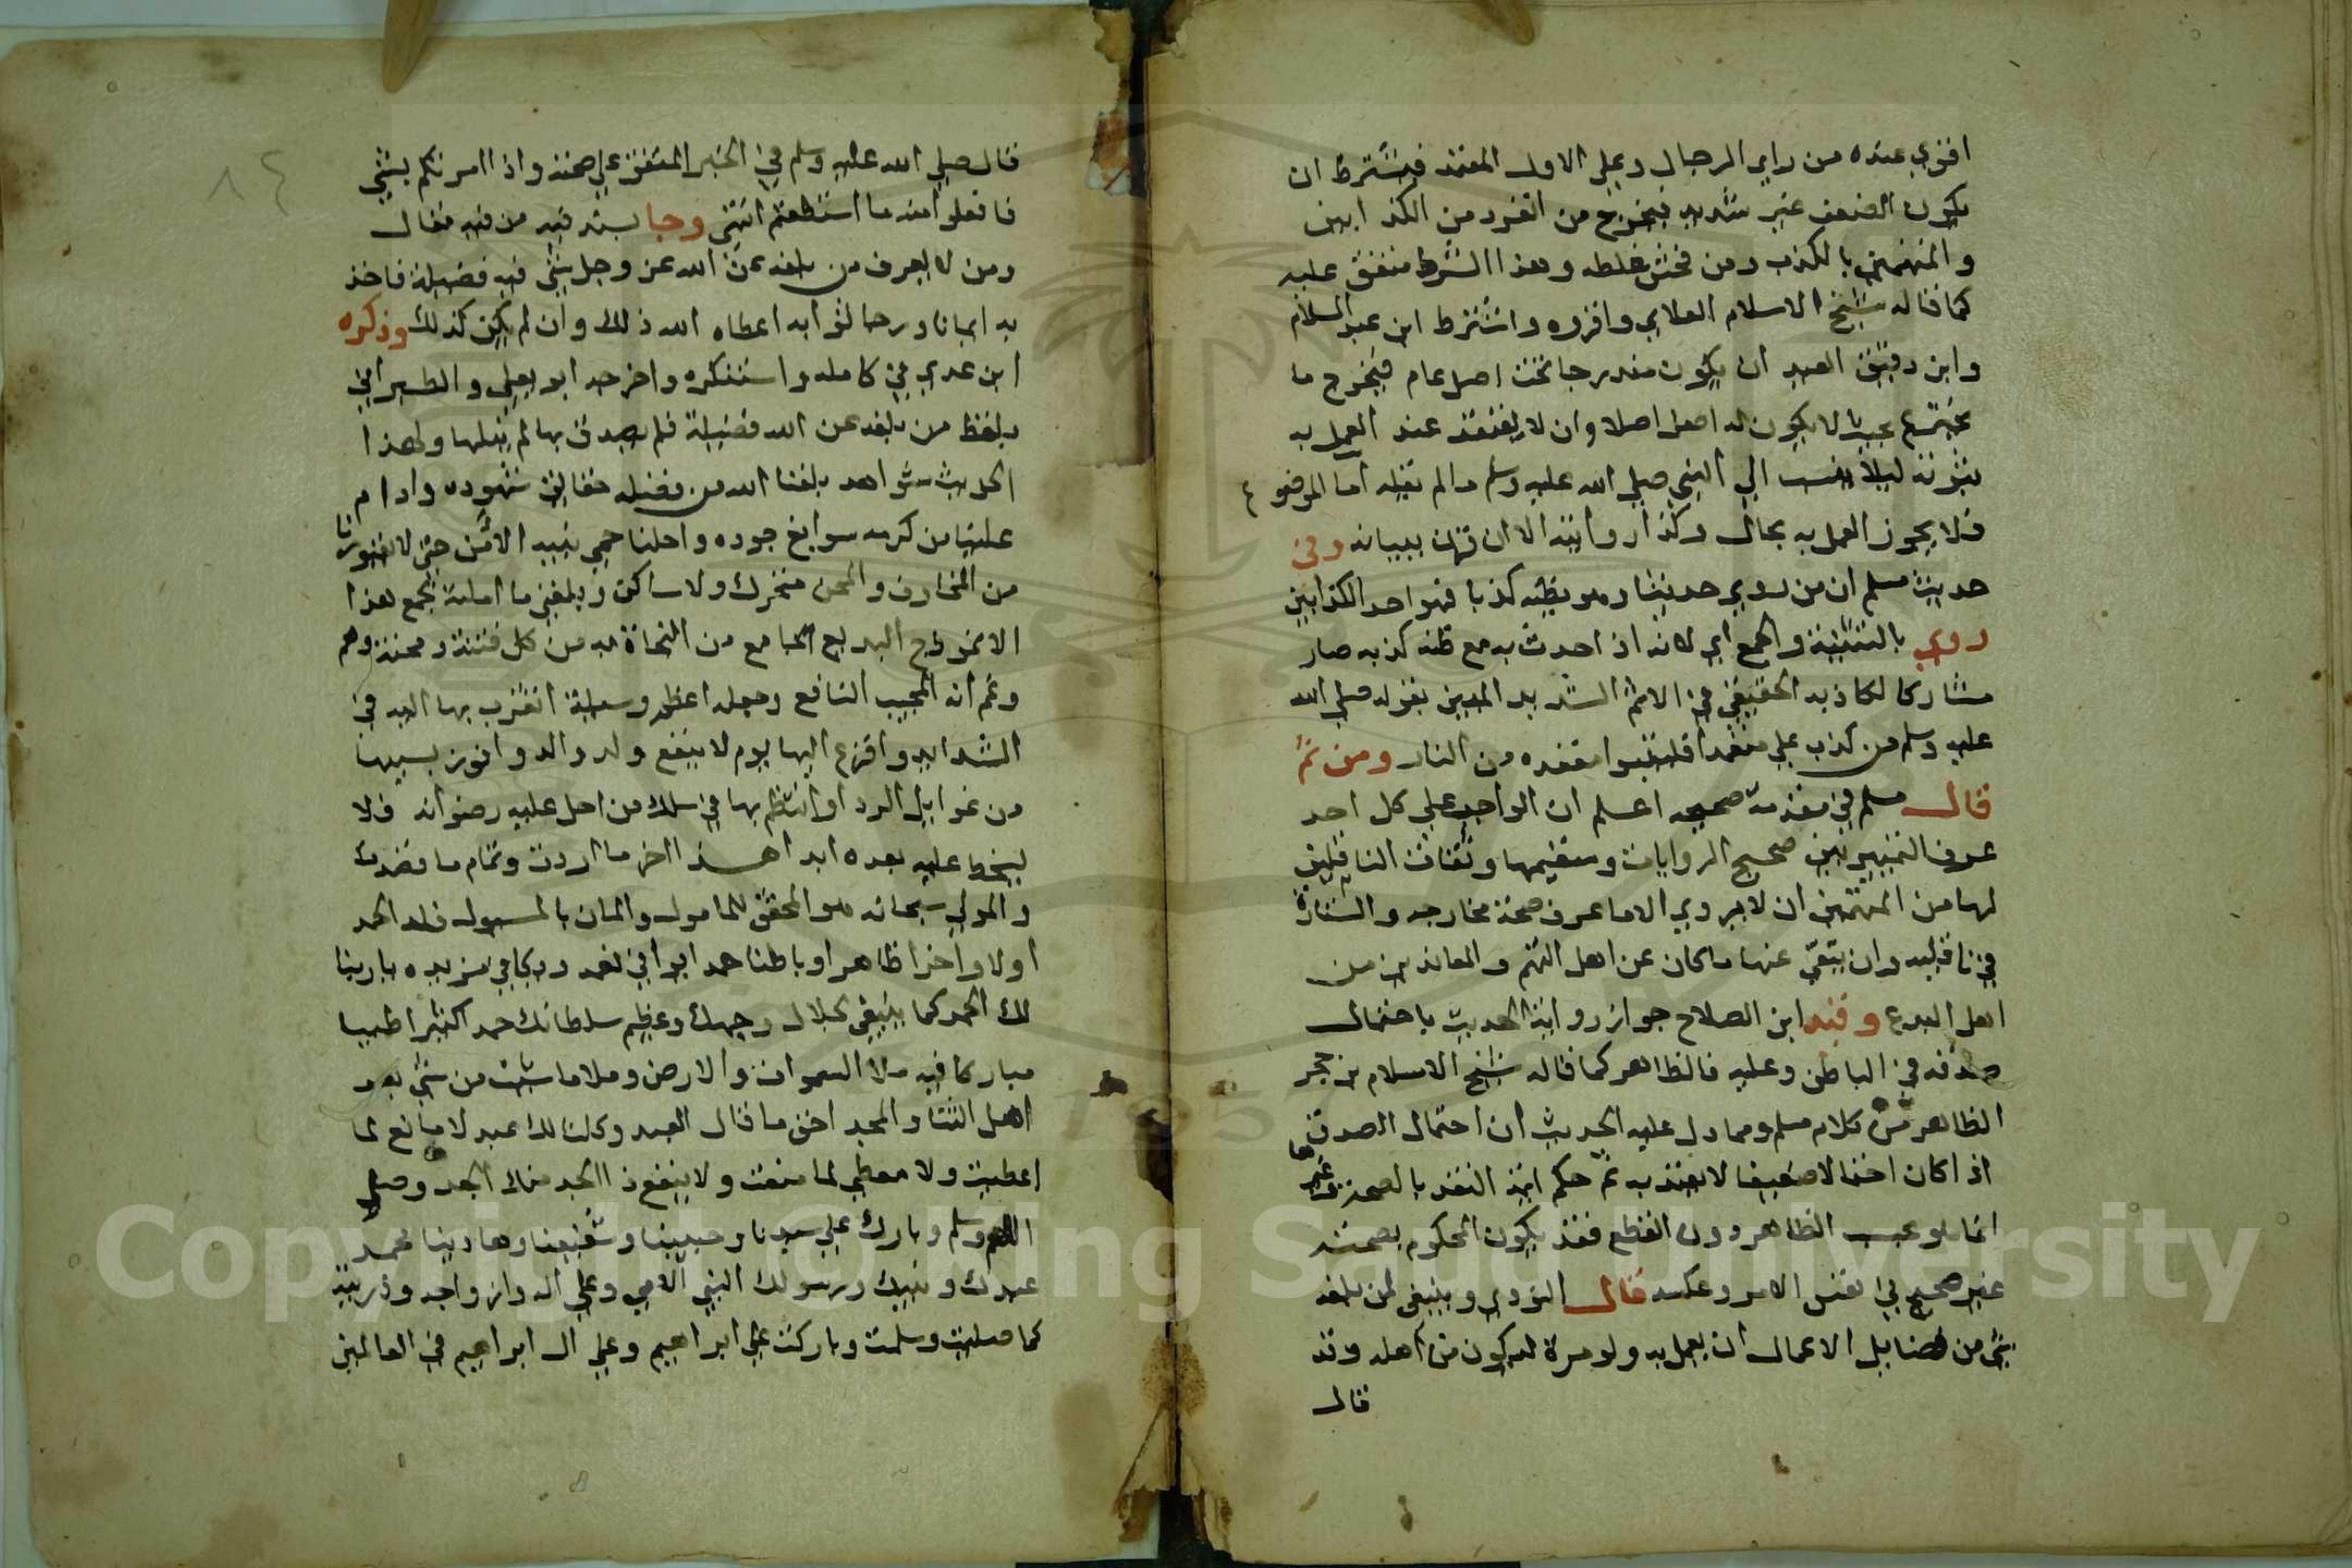 اقوي عنده من راي الرجال وعلي الاول المعتمد فيشترط ان
يكون الضعف غير شديد فيخرج من انفرد من الكذابين
والمتهمين بالكذب ومن فحش غلطه وهذا الشرط متفق عليه
كما قاله شيخ الاسلام العلاي واقروه واشترط ابن عبد السلام
وابن دقيق العيد ان يكون مندرجا تحت اصل عام فيخرج ما
يخترع بحيث لا يكون له اصل اصلا وان لا يعتقد عند العمل به
ثبوته ليلا ينسب الي النبي صلي الله عليه وسلم ما لم يقله اما الموضوع
فلا يجوز العمل به بحال وكذا روايته الا ان قرن ببيانه وفي
حديث مسلم ان من روي حديثا وهو يظنه كذبا فهو احد الكذابين
روي بالتثنية والجمع اي لانه اذا حدث به مع ظنه كذبه صار
مشاركا لكاذبه الحقيقي في الاثم الشديد المبين بقوله صلي الله
عليه وسلم من كذب علي متعمدا فليتبوا مقعده من النار ومن ثم
قال مسلم في مقدمة صحيحه اعلم ان الواجب علي كل احد
عرف التمييز بين صحيح الروايات وسقيمها وثقات الناقلين
لها من المتهمين ان لا يروي الا ما عرف صحة مخارجه والستارة
في ناقليه وان يتقي عنها ما كان عن اهل التهم والمعاندين من
اهل البدع وقيد ابن الصلاح جواز رواية الحديث باحتمال
صدقه في الباطن وعليه فالظاهر كما قاله شيخ الاسلام بن حجر
الظاهر من كلام مسلم ومما دل عليه الحديث ان احتمال الصدق
اذا كان احتمالا ضعيفا لا يعتد به ثم حكم ايمة النقد بالصحة وغيرها
انما هو بحسب الظاهر دون القطع فقد يكون المحكوم بصحته
غير صحيح في نفس الامر وعكسه قال النووي وينبغي لمن بلغه
شي من فضايل الاعمال ان يعمل به ولو مرة ليكون من اهله وقد
قال
٨٤
قال صلي الله عليه وسلم في الخبر المتفق علي صحته واذا امرتكم بشي
فافعلوا منه ما استطعتم انتهي وجا بسند فيه من فيه مقال
ومن لا يعرف من بلغه عن الله عز وجل شي فيه فضيلة فاخذ
به ايمانا ورجا ثوابه اعطاه الله ذلك وان لم يكن كذلك وذكره
ابن عدي في كامله واستنكره واخرجه ابو يعلي والطبراني
بلفظ من بلغه عن الله فضيلة فلم يصدق بها لم ينلها ولهذا
الحديث شواهد بلغنا الله من فضله حقايق شهوده وادام
علينا من كرمه سوابغ جوده واحلنا حمي نبيه الامن حتي لا يعتورنا
من المخاوف والمحن متحرك ولا ساكن وبلغني ما املته بجمع هذا
الانموذج البديع الجامع من النجاة به من كل فتنة ومحنة وهم
وغم انه المجيب النافع وجعله اعظم وسيلة اتقرب بها اليه في
الشدايد وافزع اليها يوم لا ينفع ولد والد وافوز بسببها
من غوايل الرد او انتظم بها في سلك من احل عليه رضوانه فلا
يسخط عليه بعده ابدا هذا اخر ما اردت وتمام ما قصدت
والمولي سبحانه هو المحقق للمامول والمان بالمسول فله الحمد
اولا واخرا ظاهرا وباطنا حمدا يوافي نعمه ويكافي مزيده يا ربنا
لك الحمد كما ينبغي لجلال وجهك وعظيم سلطانك حمدا كثيرا طيبا
مباركا فيه ملا السموات والارض وملا ما شيت من شي بعد
اهل الثنا والمجد احق ما قال العبد وكلنا لك عبد لا مانع لما
اعطيت ولا معطي لما منعت ولا ينفع ذا الجد منك الجد وصلي
اللهم وسلم وبارك علي سيدنا وحبيبنا وشفيعنا وهادينا محمد
عبدك ونبيك ورسولك النبي الامي وعلي اله وازواجه وذريته
كما صليت وسلمت وباركت علي ابراهيم وعلي ال ابراهيم في العالمين
Copyright © King Saud University